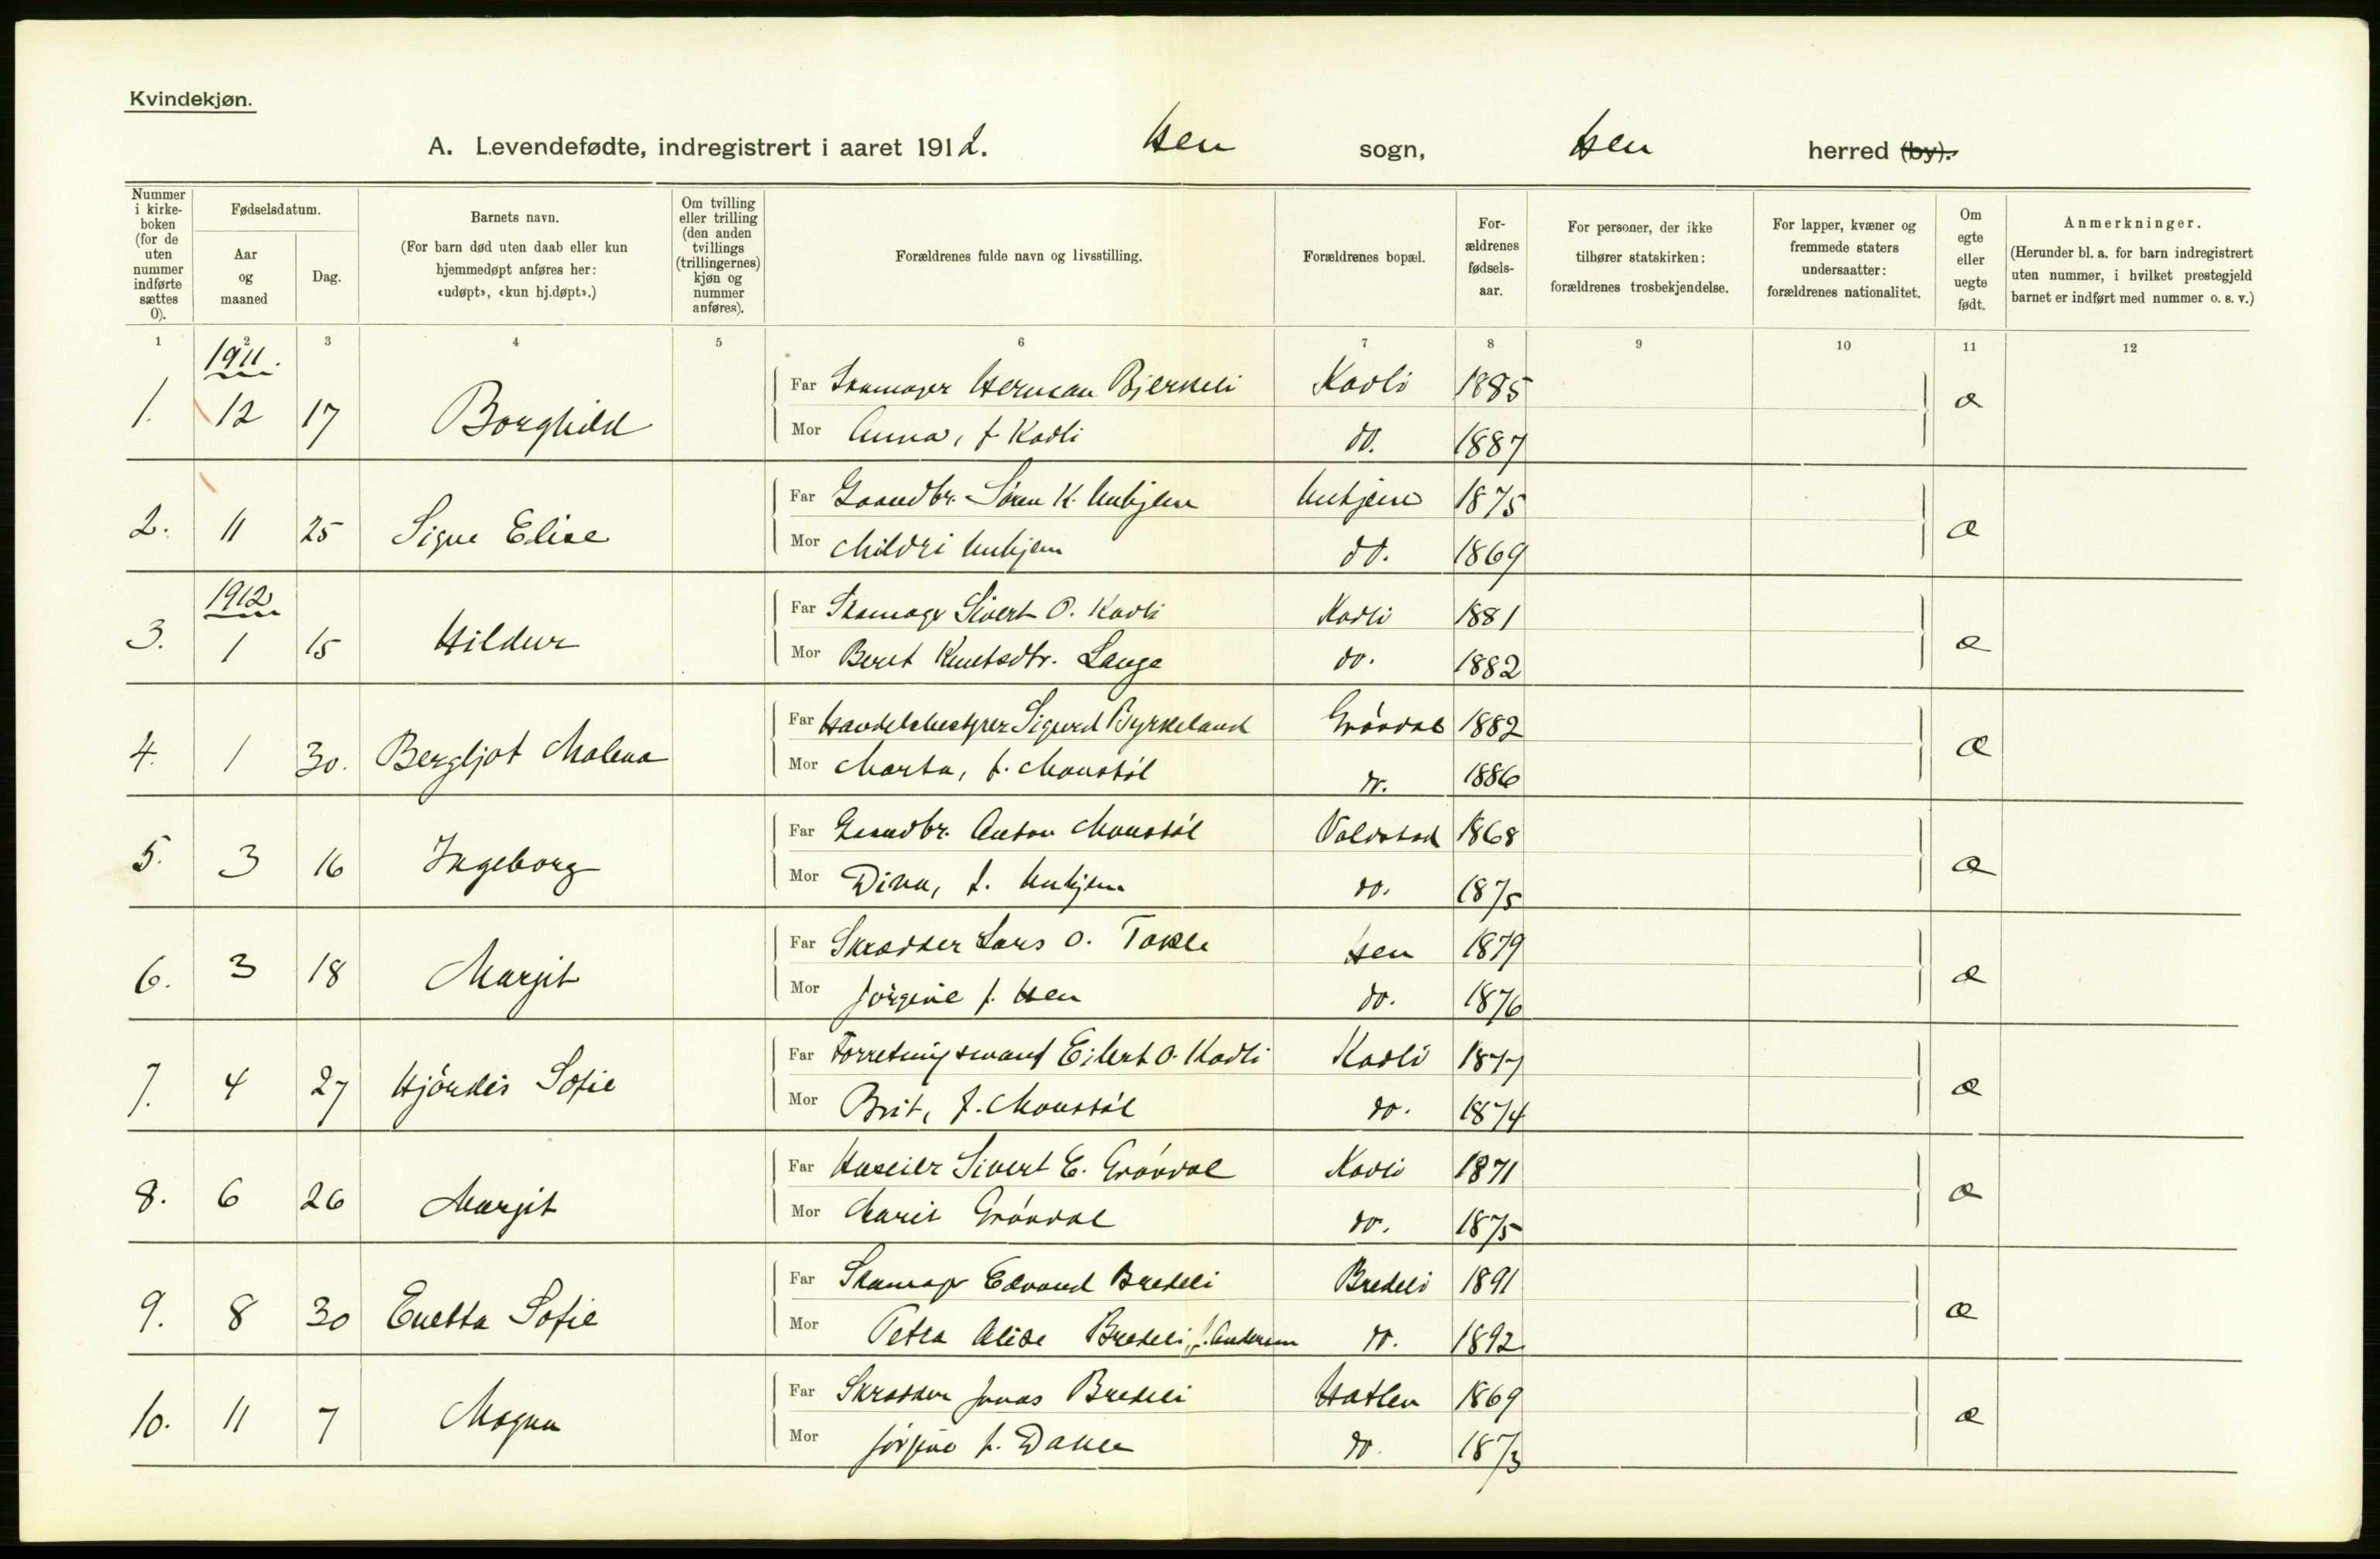 Kvindekjøn.
A. Levendefødte, indregistrert i aaret 1912. Hen sogn, Hen herred (by).
Nummer i kirke-boken (for de uten nummer indførte sættes 0).
Fødselsdatum.
Aar og maaned
Dag.
Barnets navn.
(For barn død uten daab eller kun
hjemmedøpt anføres her:
«udøpt», «kun hj.døpt».)
Om tvilling
eller trilling
(den anden
tvillings
(trillingernes)
kjøn og
nummer
anføres).
Forældrenes fulde navn og livsstilling.
Forældrenes bopæl.
For-
ældrenes
fødsels-
aar.
For personer, der ikke
tilhører statskirken:
forældrenes trosbekjendelse.
For lapper, kvæner og
fremmede staters
undersaatter:
forældrenes nationalitet.
Om
egte
eller
uegte
født.
Anmerkninger.
(Herunder bl. a. for barn indregistrert
uten nummer, i hvilket prestegjeld
barnet er indført med nummer o. s. v.)
1 2 3 4 5 6 7 8 9 10 11 12
1911.
1. 12 17 Borghild Far Skomager Herman Bjerkeli Kavli 1885 æ
Mor Anna, f. Kavli do. 1887
2. 11 25 Signe Elise Far Gaardbr. Søren K. Unhjem Unhjem 1875 æ
Mor Mildri Unhjem do. 1869
1912
3. 1 15 Hildur Far Skomager Sivert O. Kavli Kavli 1881 æ
Mor Beret Knutsdtr. Lange do. 1882
4. 1 30. Bergljot Malena Far Handelsbestyrer Sigurd Byrkeland Grøvdal 1882 æ
Mor Marta, f. Monstøl do. 1886
5. 3 16 Ingeborg Far Gaardbr. Anton Monstøl Voldstad 1868 æ
Mor Dina, f. Unhjem do. 1875
6. 3 18 Margit Far Skrædder Lars O. Takle Hen 1879 æ
Mor Jørgine f. Hen do. 1876
7. 4 27 Hjørdis Sofie Far Forretningsmand Eilert O. Kavli Kavli 1877 æ
Mor Brit, f. Monstøl do. 1874
8. 6 26 Margit Far Huseier Sivert E. Grøvdal Kavli 1871 æ
Mor Marit Grøvdal do. 1875
9. 8 30 Enetta Sofie Far Skomager Edvard Bredeli Bredeli 1891 æ
Mor Petra Alise Bredeli, f. Andersen do. 1892
10. 11 7 Magna Far Skrædder Jonas Bredeli Hatlen 1869 æ
Mor Jørgine f. do. 1873